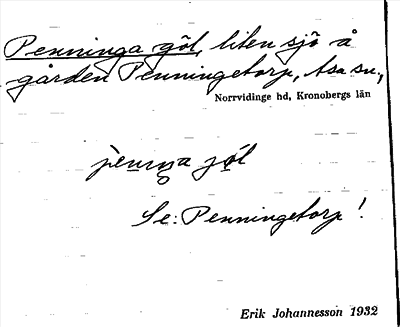 Penninga göl, liten sjö å
gården Penningetorp, Asa sn,
Norrvidinge hd, Kronobergs län
Se: Penningetorp!
Erik Johannesson 1932